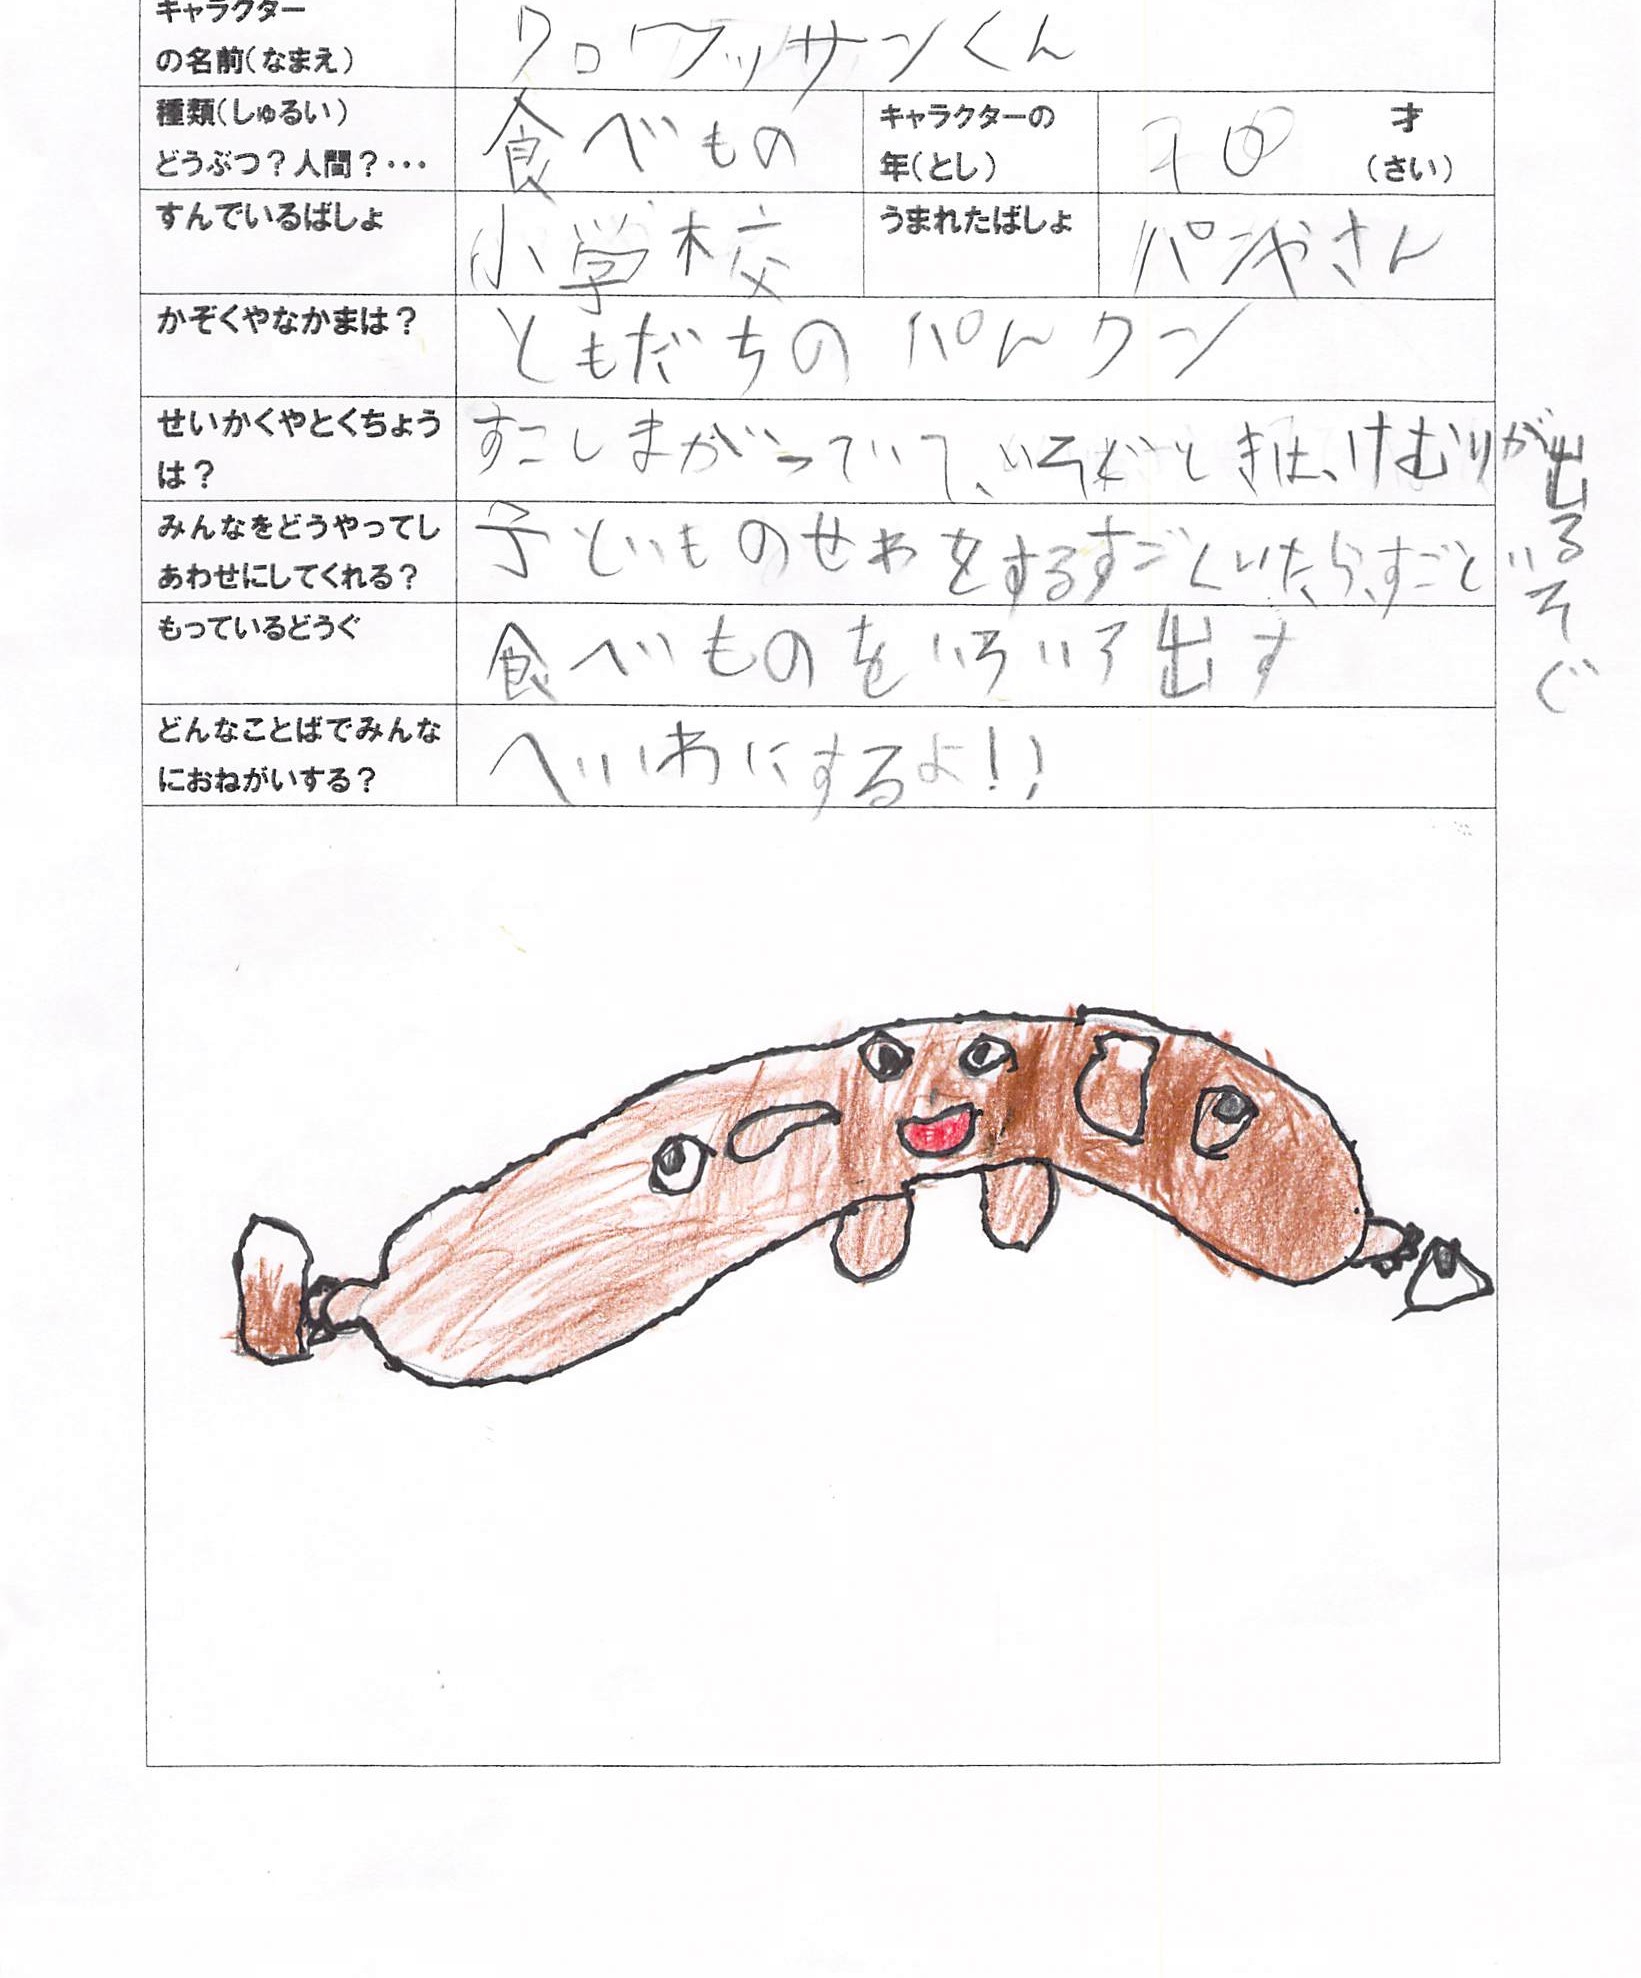 キャラクター
の名前(なまえ)
クロワッサンくん
種類(しゅるい)
どうぶつ?人間?・・・
食べもの
キャラクターの
年(とし)
才
(さい)
すんでいるばしょ
小学校
うまれたばしょ
パンやさん
かぞくやなかまは?
ともだちの パんクン
せいかくやとくちょう
は?
すこしまがっていて、いそぐときは、けむりが出る
みんなをどうやってし
あわせにしてくれる?
子どものせわをするすごくいたら、すごど
いそぐ
もっているどうぐ
食べものをいろいろ出す
どんなことばでみんな
におねがいする?
へいわにするよ!!